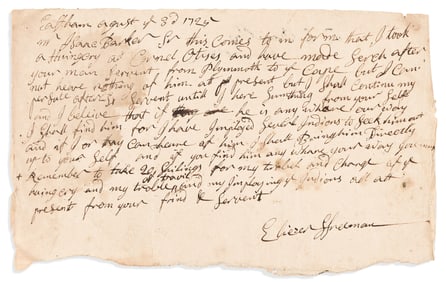 Eastham agust ye 3d 1729
mr Isaac Barker Sr this Comes to in for me that I took
a huingcry at Cornel Otises and have made Serch after
your man Servent from Plymmoth to ye Cape but I Can
not heve nothing of him at present but I shall Continu my
persute after Sr Servent until I here sumthing from your Self
and believe that if he is any whare our way
I shall find him for I have Imployed Severl Indians to Seek him out
and if I or they Can heare of him I shall Bring him Directly
up to your Self and if you find him any whare your way you must
Remember to take 20 shilings for my trobel and Charge of ye
huingcry and my travil and my Imploying ye Indians all at
present from your frind & Servent
Eliezer Freeman